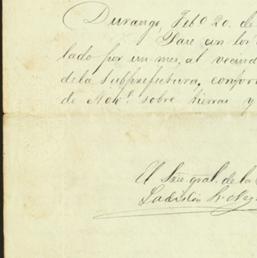 Durango, Feb.º 20. de
Pase con los
lado por un mes, al vecind
de la Subprefectura, confor
de Nov.º sobre tierras y
El Srio gral. de la
Ladislao